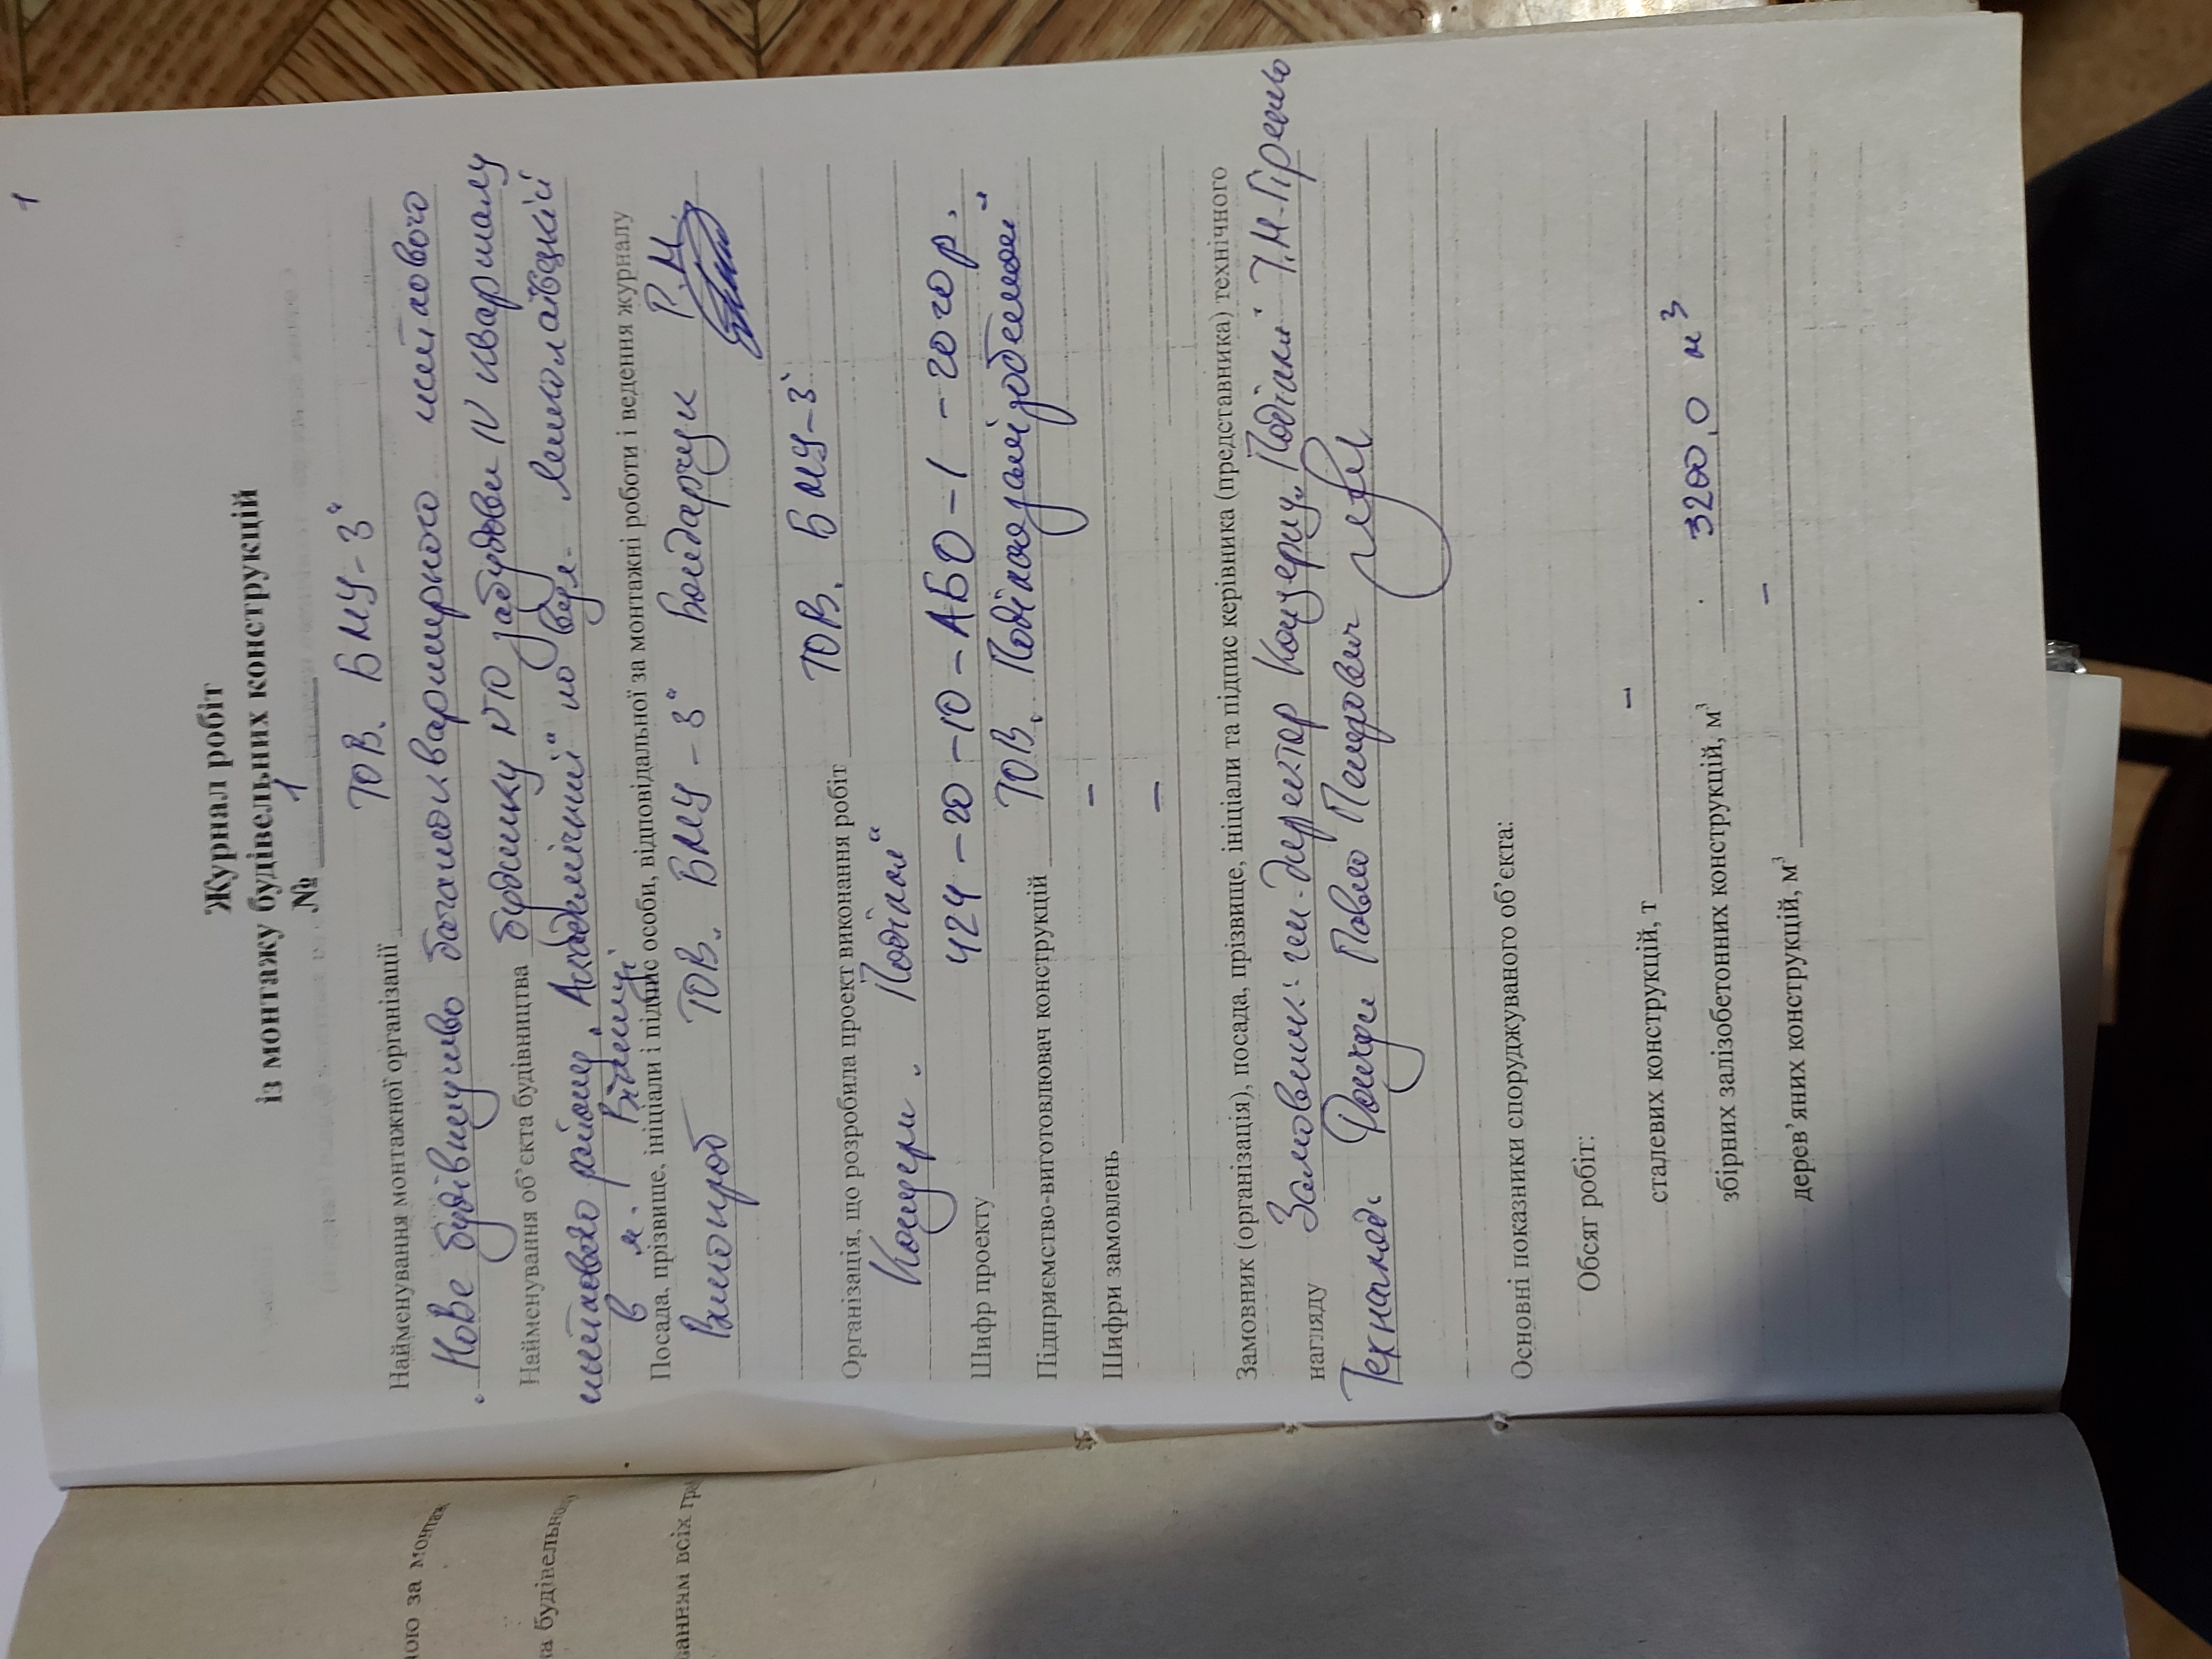 1
Журнал робіт
із монтажу будівельних конструкцій
№ 1
ТОВ „БМУ-3“
Найменування монтажної організації
Нове будівництво багатоквартирного житлового
Найменування об’єкта будівництва будинку №10 забудови IV кварталу
житлового району „Академічний“ по вул.
в м. Вінниці
Посада, прізвище, ініціали і підпис особи, відповідальної за монтажні роботи і ведення журналу
Виконроб ТОВ „БМУ-3“ Бондарчук Р.М.
Організація, що розробила проект виконання робіт ТОВ „БМУ-3“
Концерн „Поділля“
Шифр проекту 424-20-10-АБО-1-2020р.
Підприємство-виготовлювач конструкцій ТОВ „Подільськзалізобетон“
–
Шифри замовлень –
Замовник (організація), посада, прізвище, ініціали та підпис керівника (представника) технічного
нагляду Замовник: ген.директор Концерну „Поділля“
Технагляд Павло
Основні показники споруджуваного об’єкта:
Обсяг робіт:
сталевих конструкцій, т –
збірних залізобетонних конструкцій, м³ 3200,0 м³
дерев’яних конструкцій, м³ –
ною за монтаж
на будівельному
ванням всіх